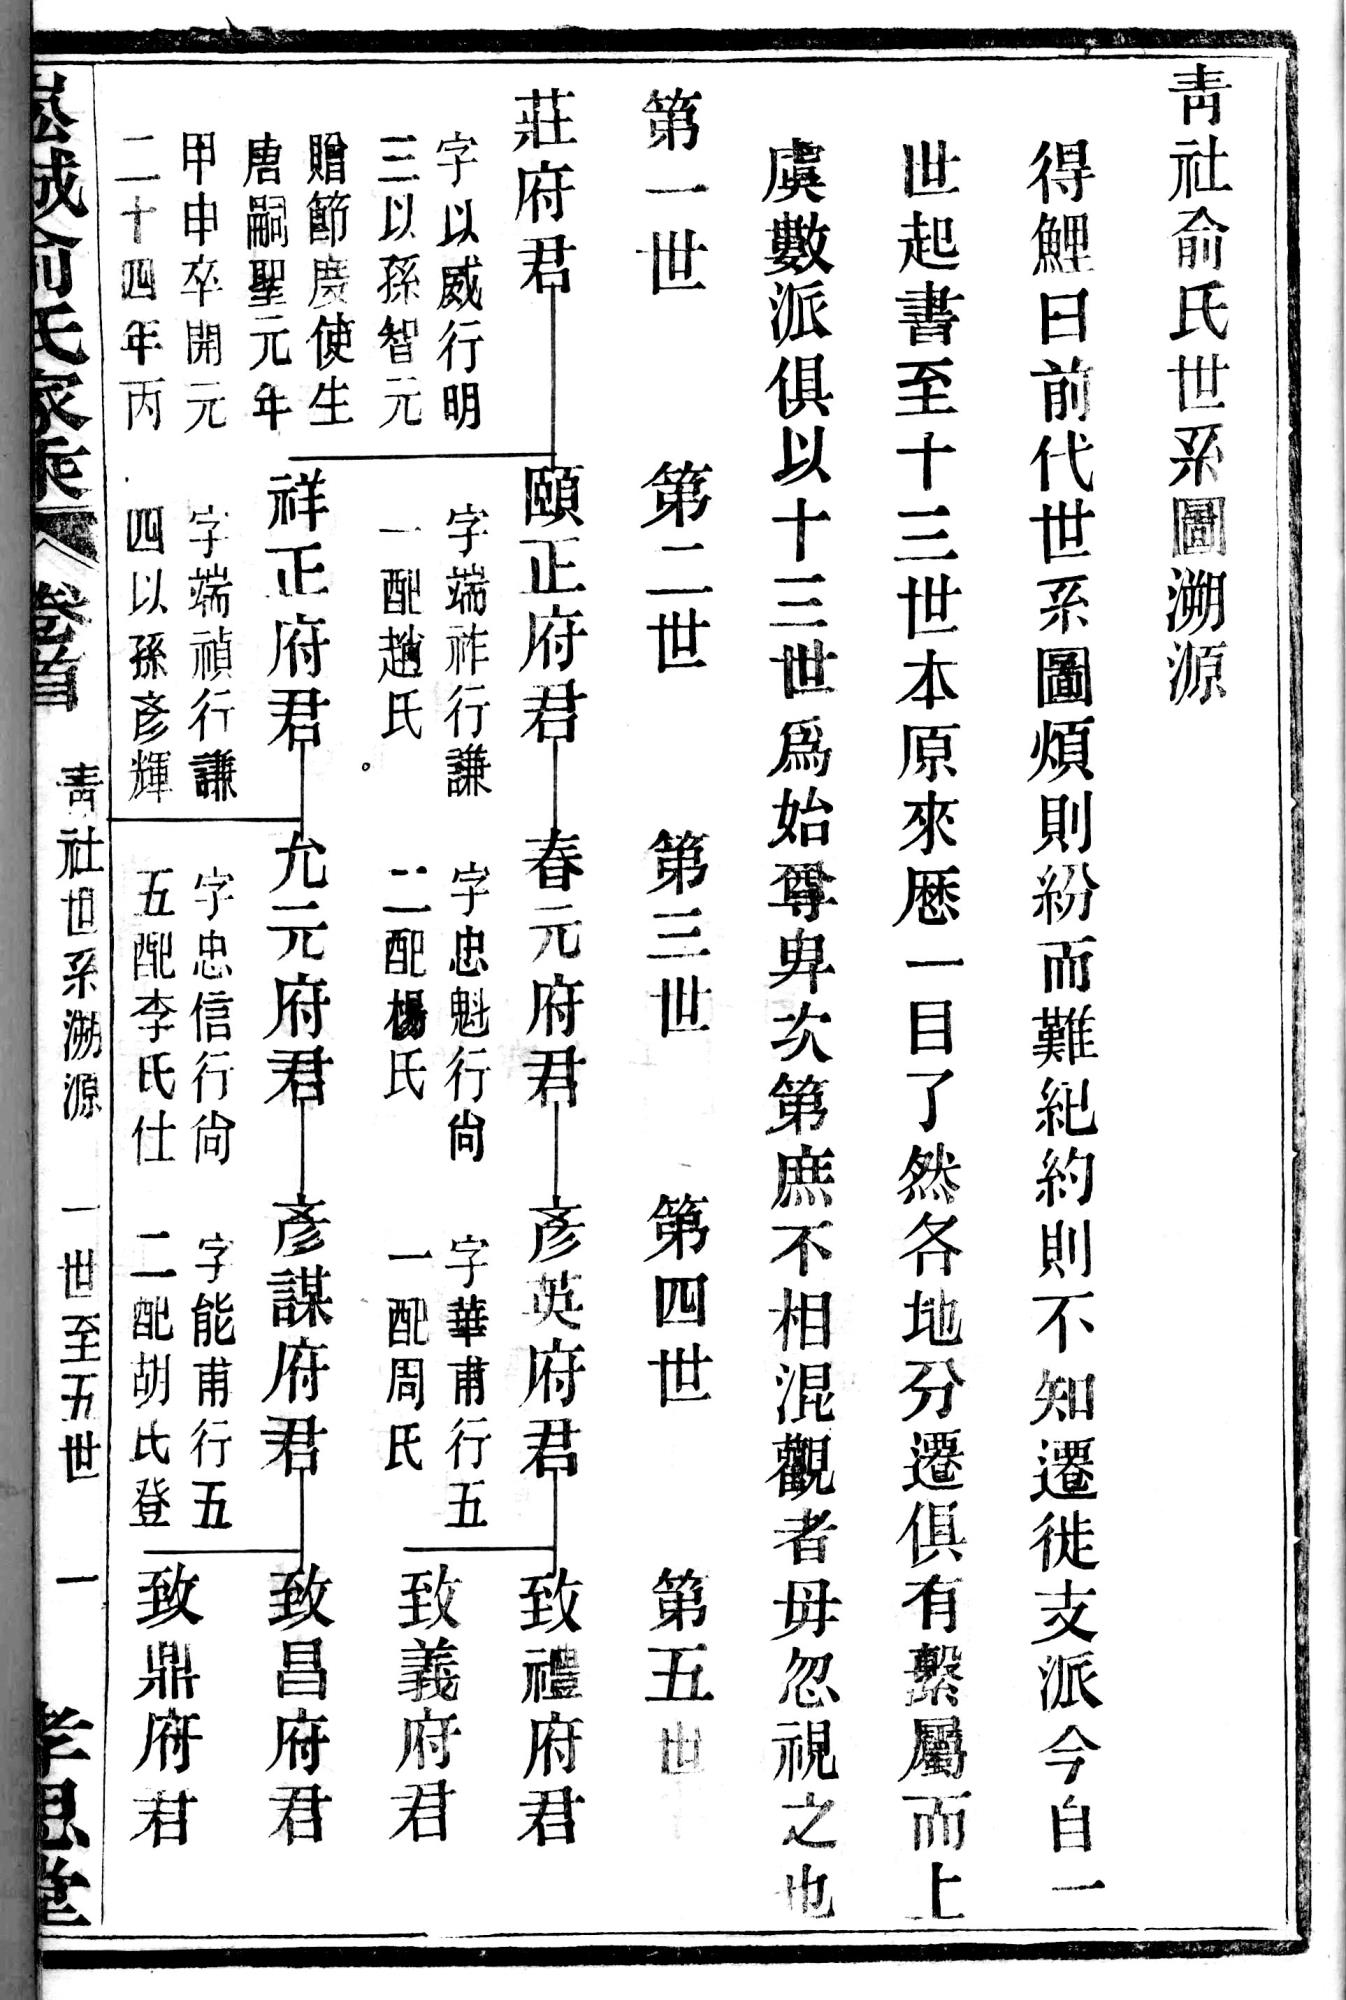 青社俞氏世系圖溯源
得鯉曰前代世系圖煩則紛而難紀約則不知遷徙支派今自一
世起書至十三世本原來歷一目了然各地分遷俱有繫屬而上
虞數派俱以十三世爲始尊卑次第庶不相混觀者毋忽視之也
第一世
第二世
第三世
第四世
第五世
莊府君
字以威行明
三以孫智元
贈節度使生
唐嗣聖元年
甲申卒開元
二十四年丙
頤正府君
字端祚行謙
一配趙氏
春元府君
字忠魁行尙
二配楊氏
彥英府君
字華甫行五
一配周氏
致禮府君
致義府君
祥正府君
字端禎行謙
四以孫彥輝
允元府君
字忠信行尙
五配李氏仕
彥謀府君
字能甫行五
二配胡氏登
致昌府君
致鼎府君
俞氏家乘
卷首
青社世系溯源
一世至五世
一
孝思堂